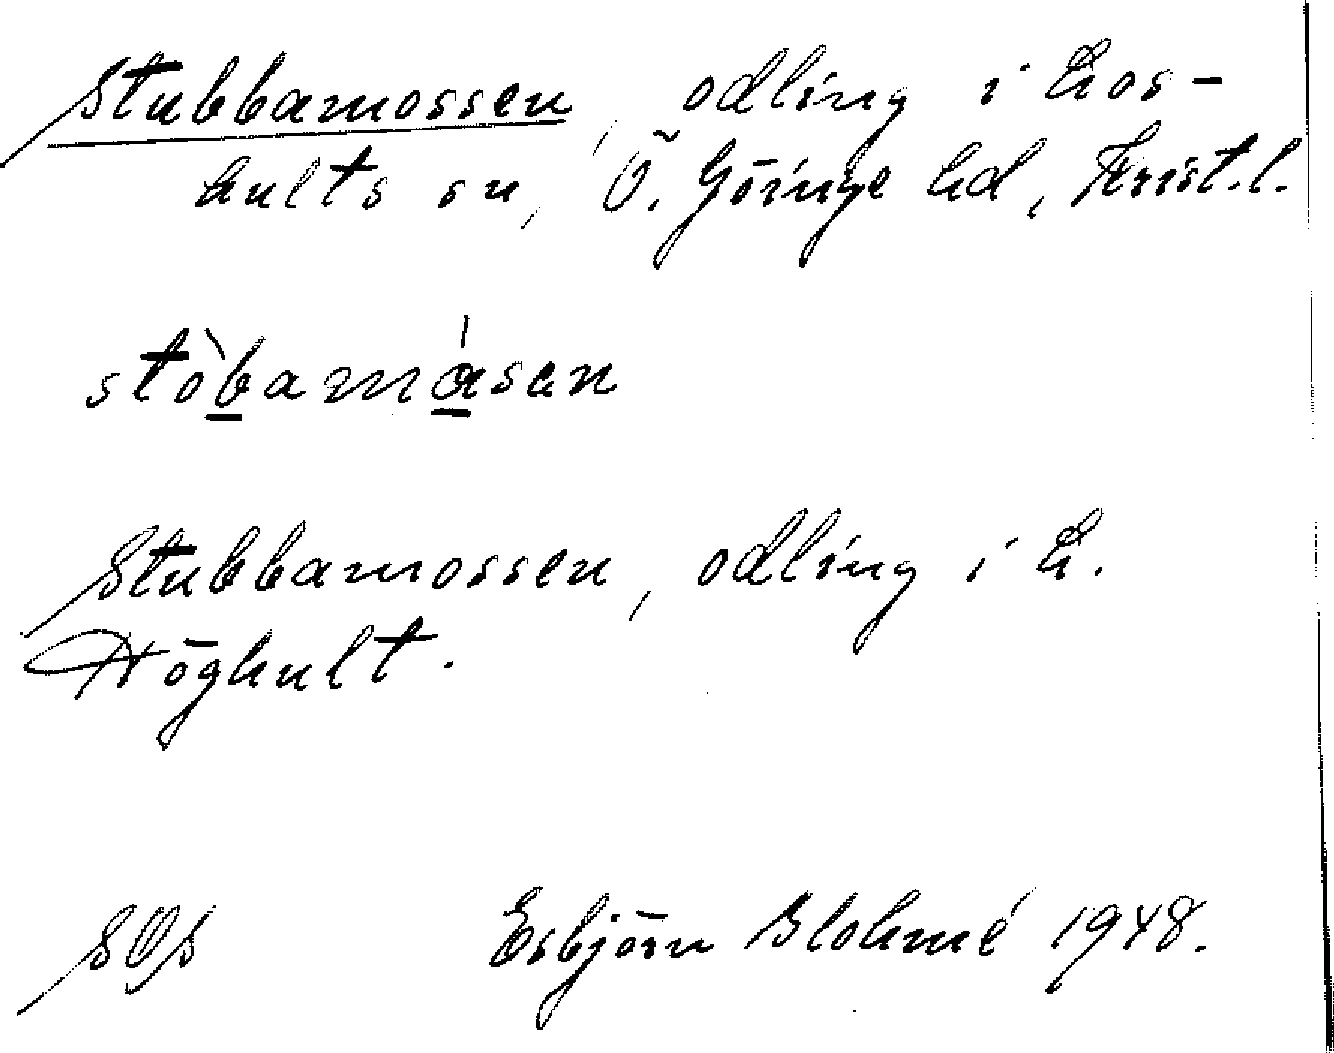 Stubbamossen, odling i Los-
hults sn, Ö. Göinge hd, Krist.l.
stòbamásen
Stubbamossen, odling i L.
Höghult.
Esbjörn Blohmé 1948.